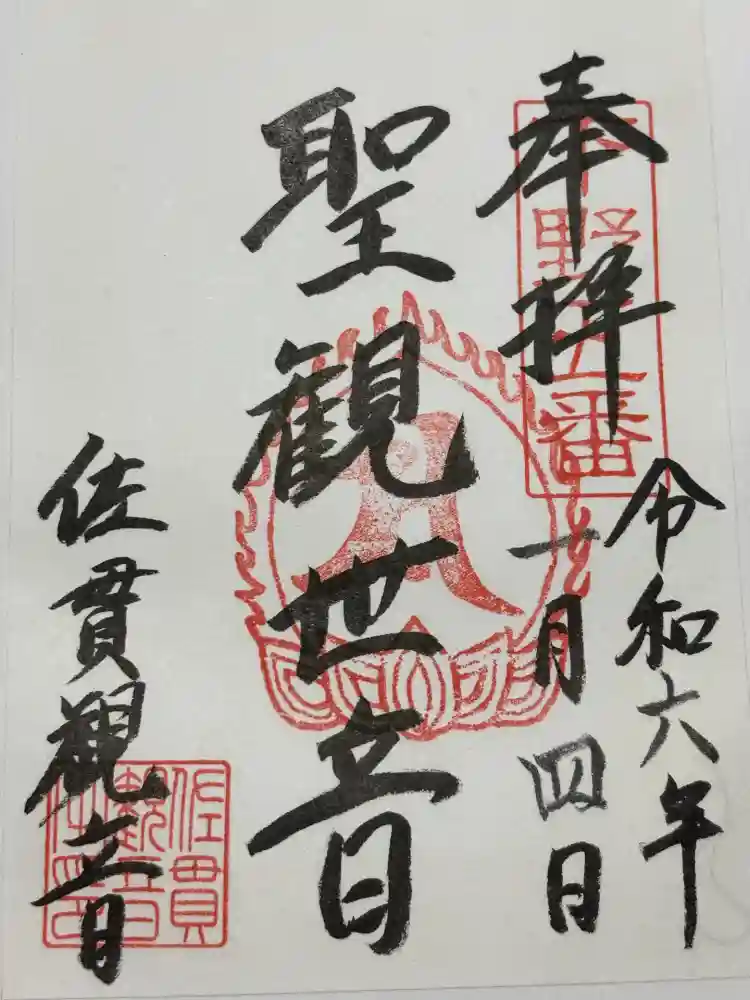 奉拝
令和六年
一月四日
聖観世音
佐貫観音
野 番
佐貫
観音